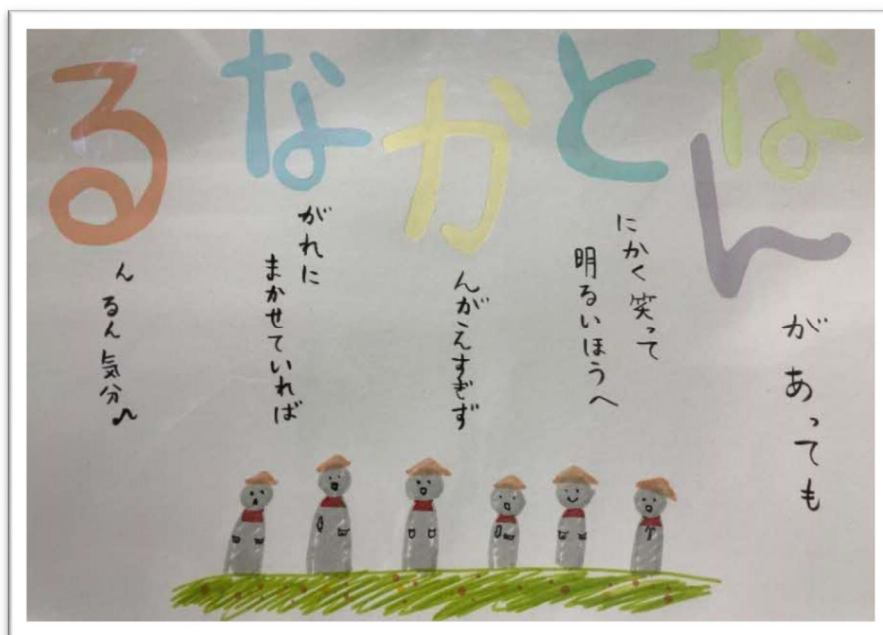 なんがあっても
とにかく笑って
明るいほうへ
かんがえすぎず
ながれに
まかせていれば
るん るん気分♪